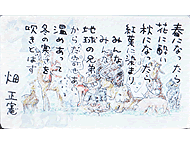 春になったら
花に酔い
秋になったら
紅葉に染まり
みんな
みんな
地球の兄弟
からだ寄せ
温めあって
冬の寒さを
吹きとばす
畑 正憲